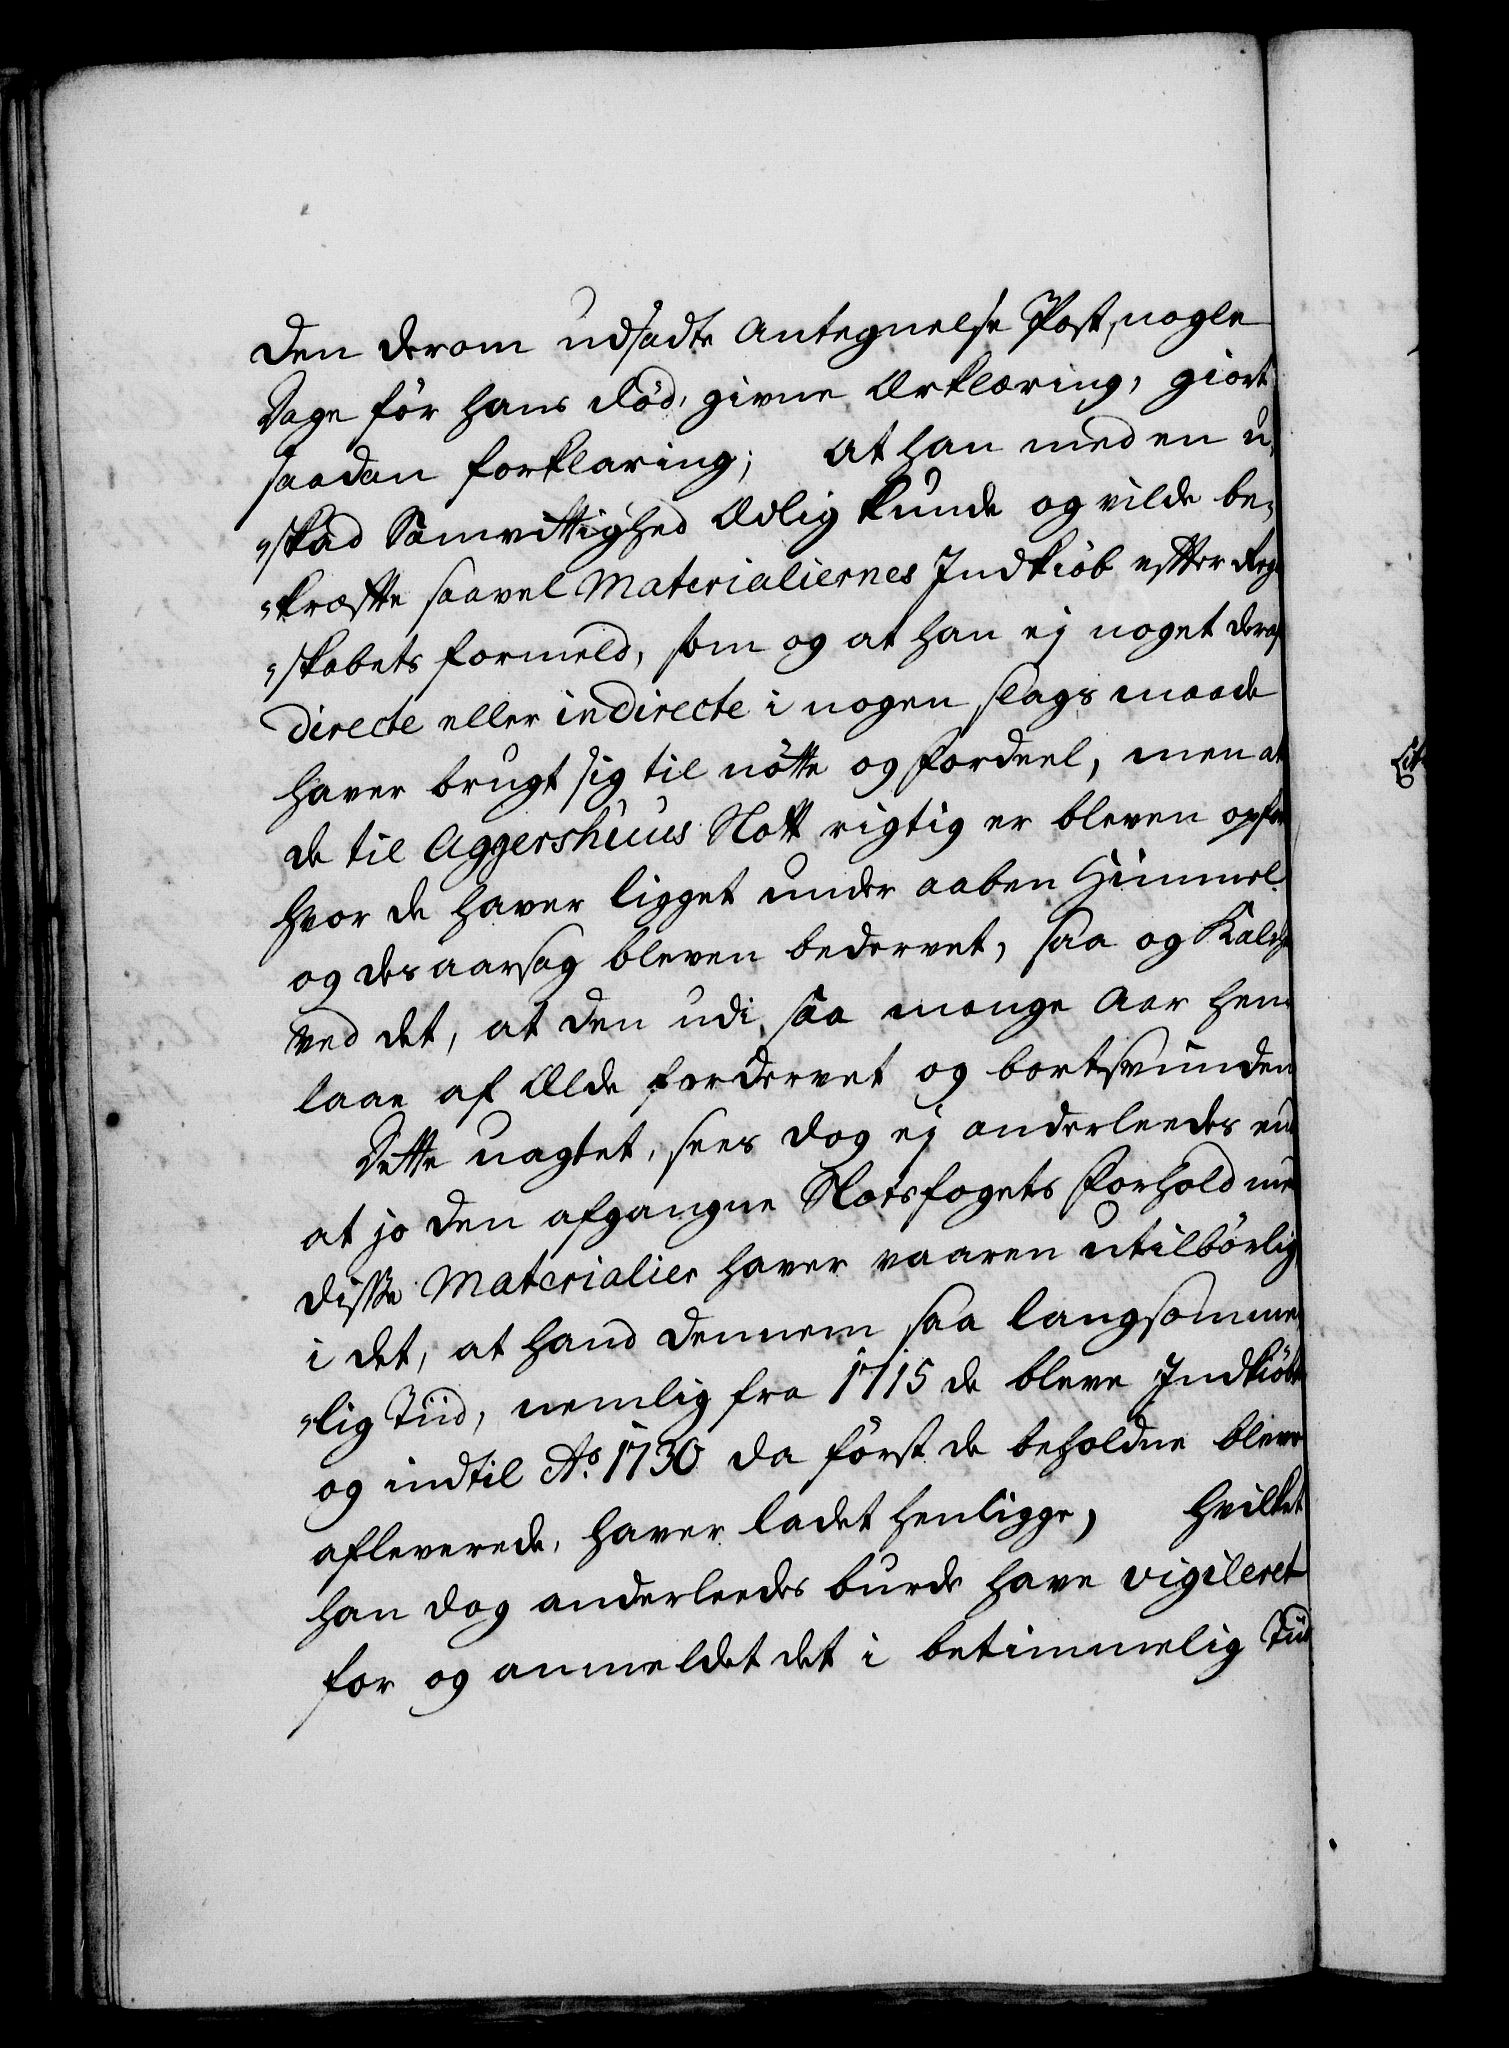 den derom udsadte Antegnelse Post, nogle
Dage för hans död, givne Erklæring, giort
saadan forklaring; at han med en u-
"skad Samvittighed Edlig kunde og vilde be-
"kræfte saavel Materialiernes Indkiöb effter Reg-
"skabets formeld, som og at han ej noget deraf
directe eller indirecte i nogen slags maade
haver brugt sig til nötte og fordeel, men at
de til Aggershuus Slott rigtig er bleven opfør
hvor de haver ligget under aaben Himmel
og des aarsag bleven bedervet, saa og Kalch
ved det, at den udi saa mange Aar hen-
laae af Elde fordervet og bortsvunden
Dette uagtet, sees dog ej anderleedes end
at jo den afgangne Slotsfogets Forhold med
disse Materialier haver vaaren utilbörlig
i det, at hand dennem saa langsomme
"lig Tiid, nemlig fra 1715 de bleve Indkiöbt
og indtil Ao. 1730 da först de beholdne bleve
afleverede, haver ladet henligge, hvilket
han dog anderleedes burde have vigileret
for og anmeldet det i betimmelig Tiid